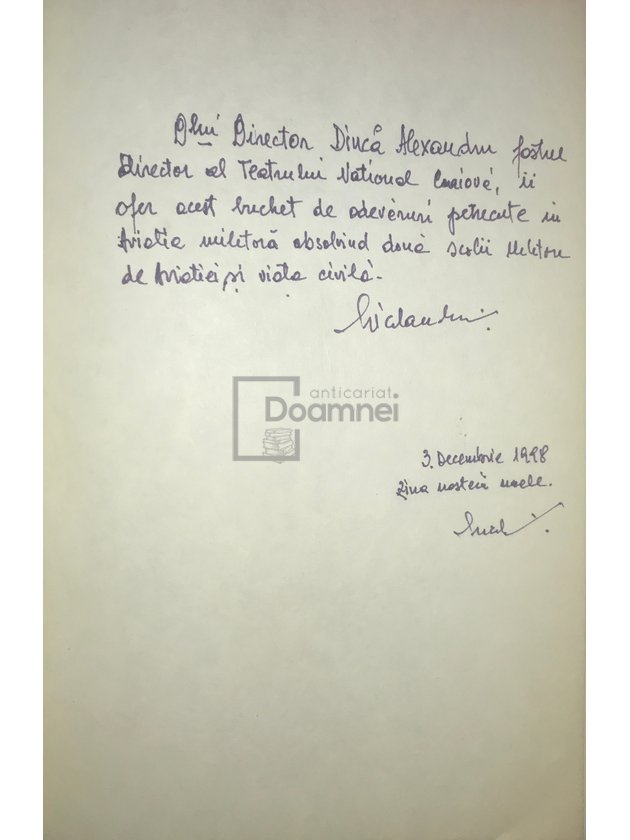 Dlui Director Dincă Alexandru fostul
Director al Teatrului Național Craiova, îi
ofer acest buchet de adevăruri petrecute în
Aviația militară absolvind două școlii Militare
de Aviației, și viața civilă.
anticariat
Doamnei
3. Decembrie 1998
Ziua nașterii mele.